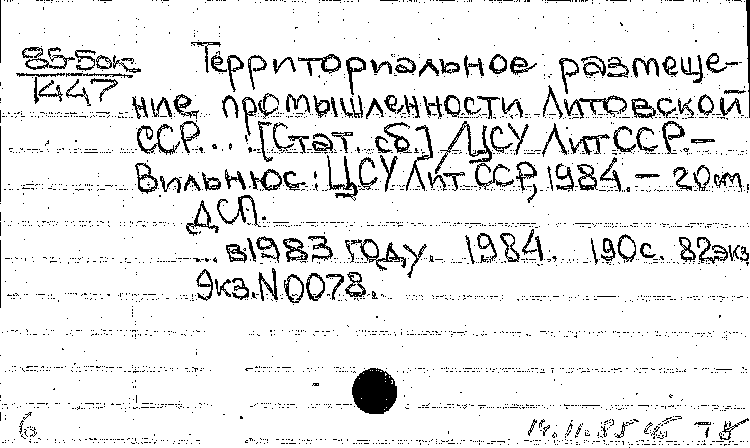 85-5ок
1447
Территориальное размеще-
ние промышленности Литовской
ССР... : [Стат. сб.] / ЦСУ ЛитССР.-
Вильнюс : ЦСУ Лит ССР, 1984. - 20см.
ДСП.
... в 1983 году. 1984. 190с. 82экз
Экз.N0078.
6 14.11.85